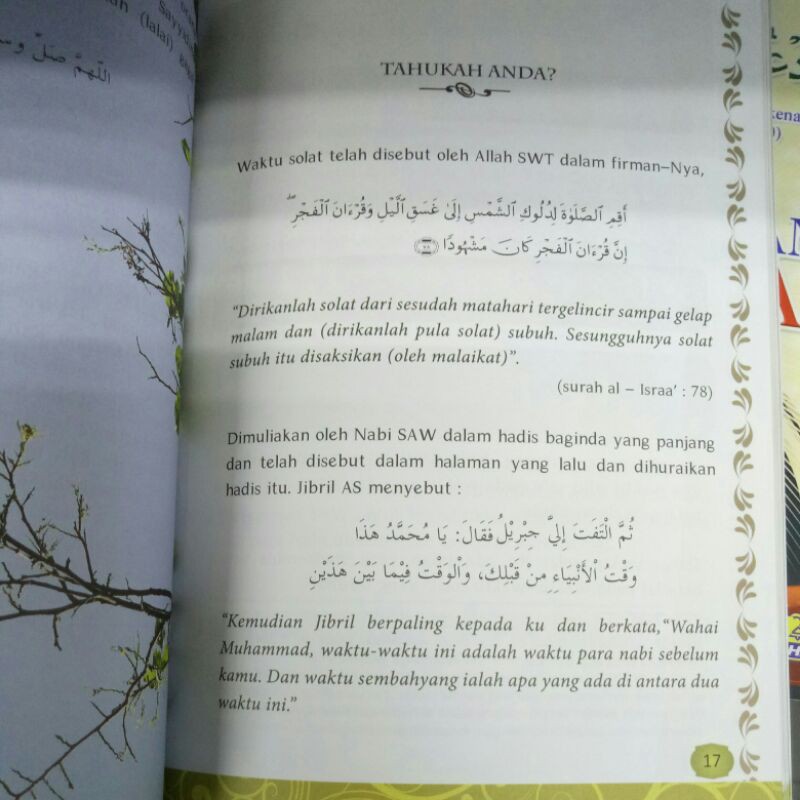 (lalai)
اللّهمّ صلّ وسل
TAHUKAH ANDA?
Waktu solat telah disebut oleh Allah SWT dalam firman–Nya,
أَقِمِ ٱلصَّلَوٰةَ لِدُلُوكِ ٱلشَّمْسِ إِلَىٰ غَسَقِ ٱلَّيْلِ وَقُرْءَانَ ٱلْفَجْرِ ۖ
إِنَّ قُرْءَانَ ٱلْفَجْرِ كَانَ مَشْهُودًا ﴿٧٨﴾
“Dirikanlah solat dari sesudah matahari tergelincir sampai gelap
malam dan (dirikanlah pula solat) subuh. Sesungguhnya solat
subuh itu disaksikan (oleh malaikat)”.
(surah al – Israa’ : 78)
Dimuliakan oleh Nabi SAW dalam hadis baginda yang panjang
dan telah disebut dalam halaman yang lalu dan dihuraikan
hadis itu. Jibril AS menyebut :
ثُمَّ الْتَفَتَ إِلَيَّ جِبْرِيْلُ فَقَالَ: يَا مُحَمَّدُ هَذَا
وَقْتُ الْأَنْبِيَاءِ مِنْ قَبْلِكَ، وَالْوَقْتُ فِيْمَا بَيْنَ هَذَيْنِ
“Kemudian Jibril berpaling kepada ku dan berkata,“Wahai
Muhammad, waktu-waktu ini adalah waktu para nabi sebelum
kamu. Dan waktu sembahyang ialah apa yang ada di antara dua
waktu ini.”
17